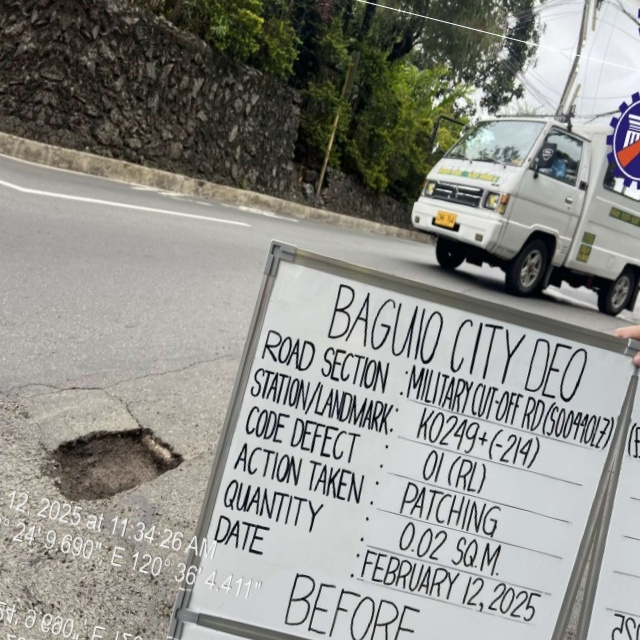 BAGUIO CITY DEO
ROAD SECTION : MILITARY CUT-OFF RD (S00440LZ)
STATION/LANDMARK: K0249+(-214)
CODE DEFECT : 01 (RL)
ACTION TAKEN : PATCHING
QUANTITY : 0.02 SQ.M.
DATE : FEBRUARY 12, 2025
BEFORE
12, 2025 at 11:34:26 AM
24' 9.690" E 120° 36' 4.411"